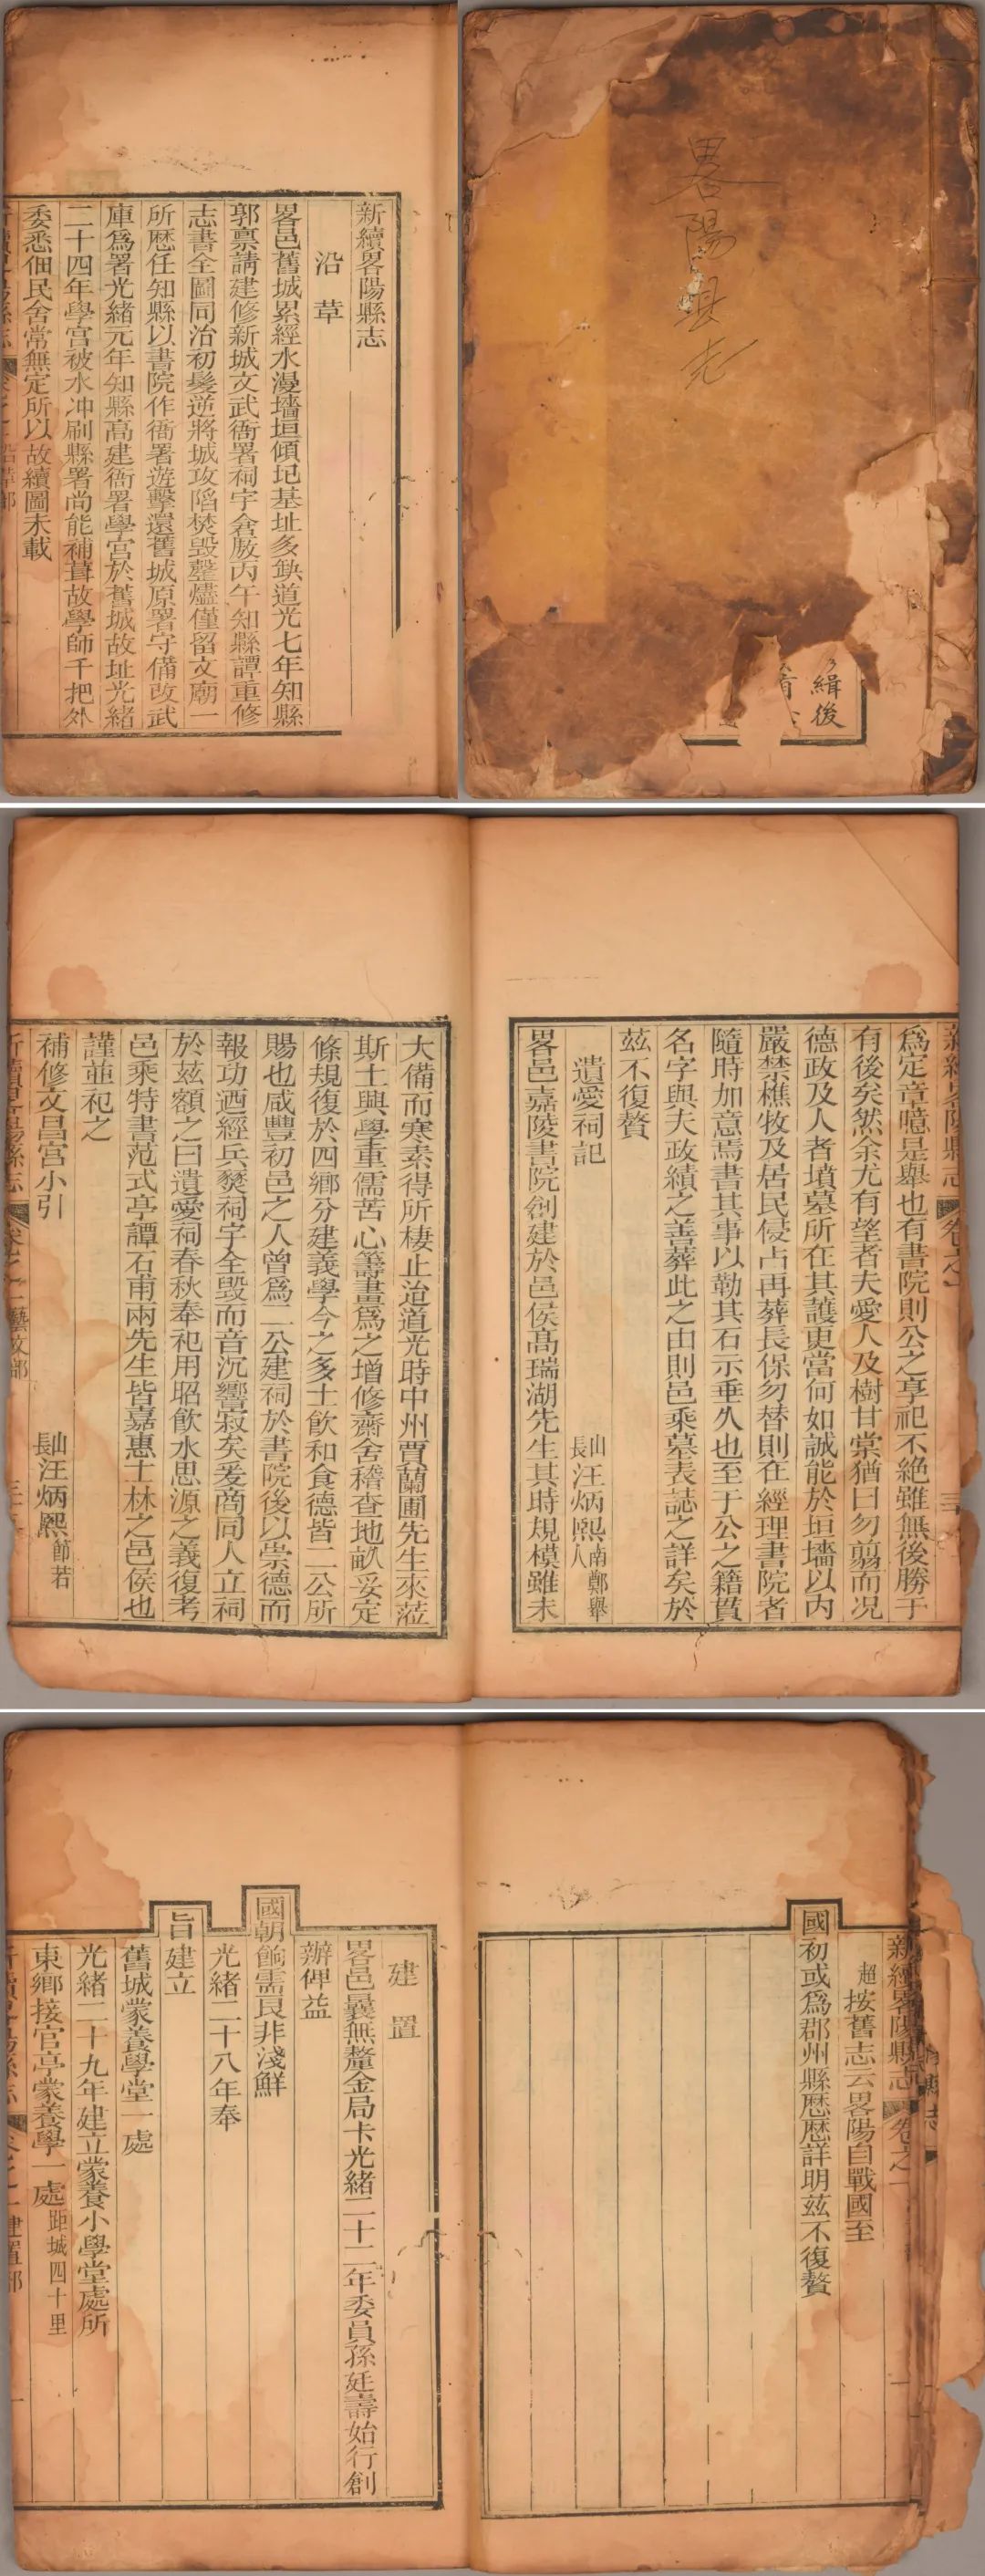 畧陽縣志
緝後
新續畧陽縣志
沿革
畧邑舊城累經水漫墻垣傾圮基址多缺道光七年知縣
郭禀請建修新城文武衙署祠宇倉廒丙午知縣譚重修
志書全圖同治初髮逆將城攻陷焚毀整燼僅留文廟一
所歷任知縣以書院作衙署遊擊還舊城原署守備改武
庫爲署光緒元年知縣高建衙署學宮於舊城故址光緒
二十四年學宮被水冲刷縣署尚能補葺故學師千把外
委悉佃民舍常無定所以故續圖未載
新續畧陽縣志 卷之一
爲定章臆是舉也有書院則公之享祀不絕雖無後勝于
有後矣然余尤有望者夫愛人及樹甘棠猶曰勿翦而况
德政及人者墳墓所在其護更當何如誠能於垣墻以内
嚴禁樵牧及居民侵占再葬長保勿替則在經理書院者
隨時加意焉書其事以勒其石示垂久也至于公之籍貫
名字與夫政績之善葬此之由則邑乘墓表誌之詳矣於
茲不復贅
遺愛祠記 山長汪炳熙南鄭舉人
畧邑嘉陵書院創建於邑侯高瑞湖先生其時規模雖未
大備而寒素得所棲止迨道光時中州賈蘭圃先生來蒞
斯土興學重儒苦心籌畫爲之增修齋舍稽查地畝妥定
條規復於四鄉分建義學今之多士飲和食德皆二公所
賜也咸豐初邑之人曾爲二公建祠於書院後以崇德而
報功迺經兵燹祠宇全毀而音沉響寂矣爰商同人立祠
於茲額之曰遺愛祠春秋奉祀用昭飲水思源之義復考
邑乘特書范式亭譚石甫兩先生皆嘉惠士林之邑侯也
謹並祀之
補修文昌宮小引 山長汪炳熙節若
新續畧陽縣志 卷之一 藝文部
新續畧陽縣志 卷之一
超按舊志云畧陽自戰國至
國初或爲郡州縣歷歷詳明茲不復贅
建置
畧邑曩無釐金局卡光緒二十二年委員孫廷壽始行創
辦俾益
國朝餉需良非淺鮮
光緒二十八年奉
旨建立
舊城蒙養學堂一處
光緒二十九年建立蒙養小學堂處所
東鄉接官亭蒙養學一處距城四十里
新續畧陽縣志 卷之一 建置部